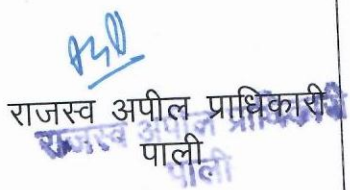 राजस्व अपील प्राधिकारी
पाली
राजस्व अपील प्राधिकारी
पाली